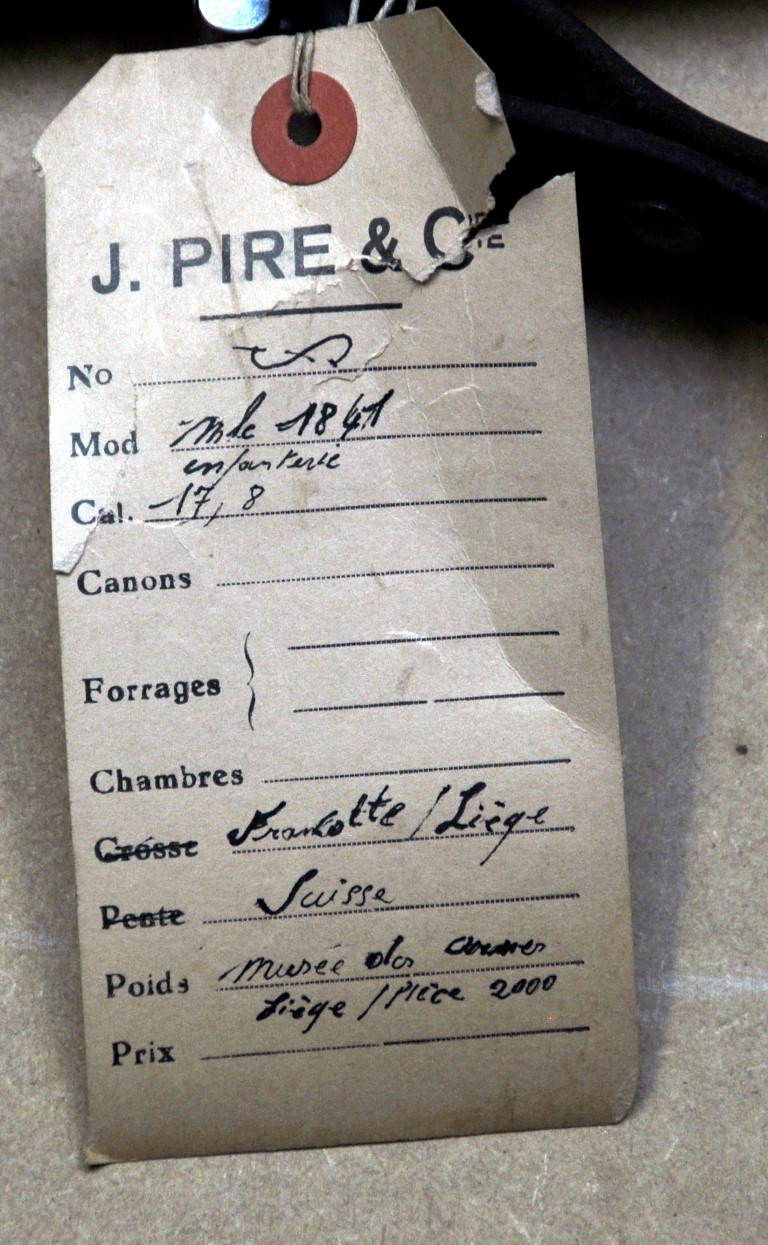 J. PIRE & CIE
No
Mod mle 1841
infanterie
Cal. 17,8
Canons
Forrages
Chambres
Crosse Francotte / Liège
Pente Suisse
Poids Musée des armes
Liège / Pièce 2000
Prix